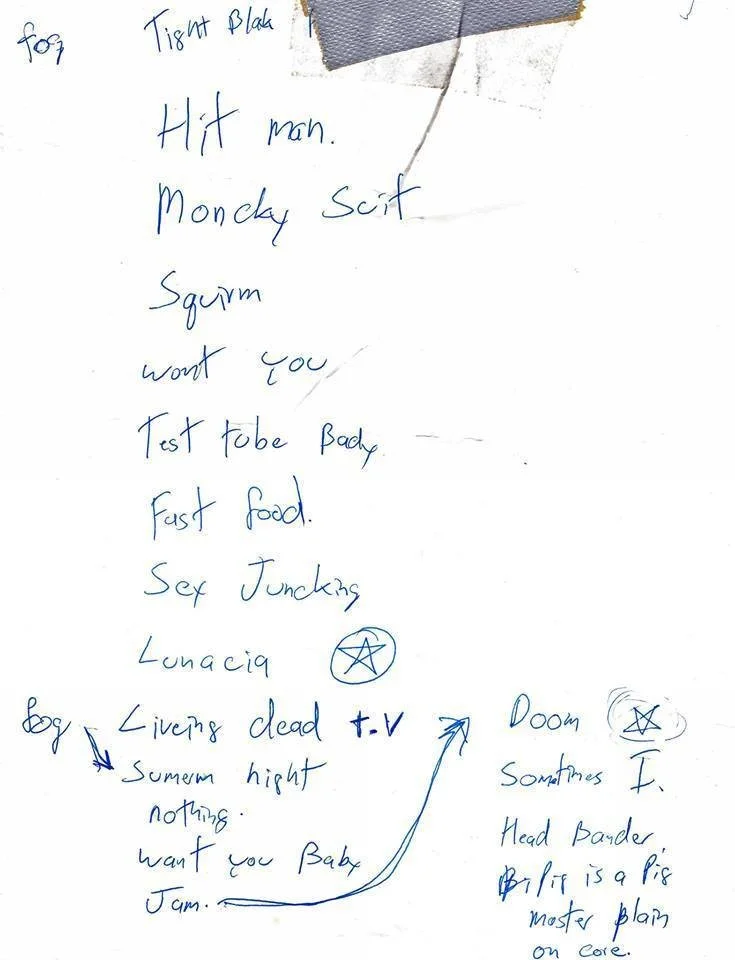 fog
Tight Blak
Hit man.
Moncky Scit
Squirm
wont you
Test tube Bady
Fast food.
Sex Juncking
Lunacia
fog Liveing dead t.V
Sumem night
nothing.
want you Baby
Jam.
Doom
Sometimes I.
Head Bander.
is a Pig
master plain
on core.